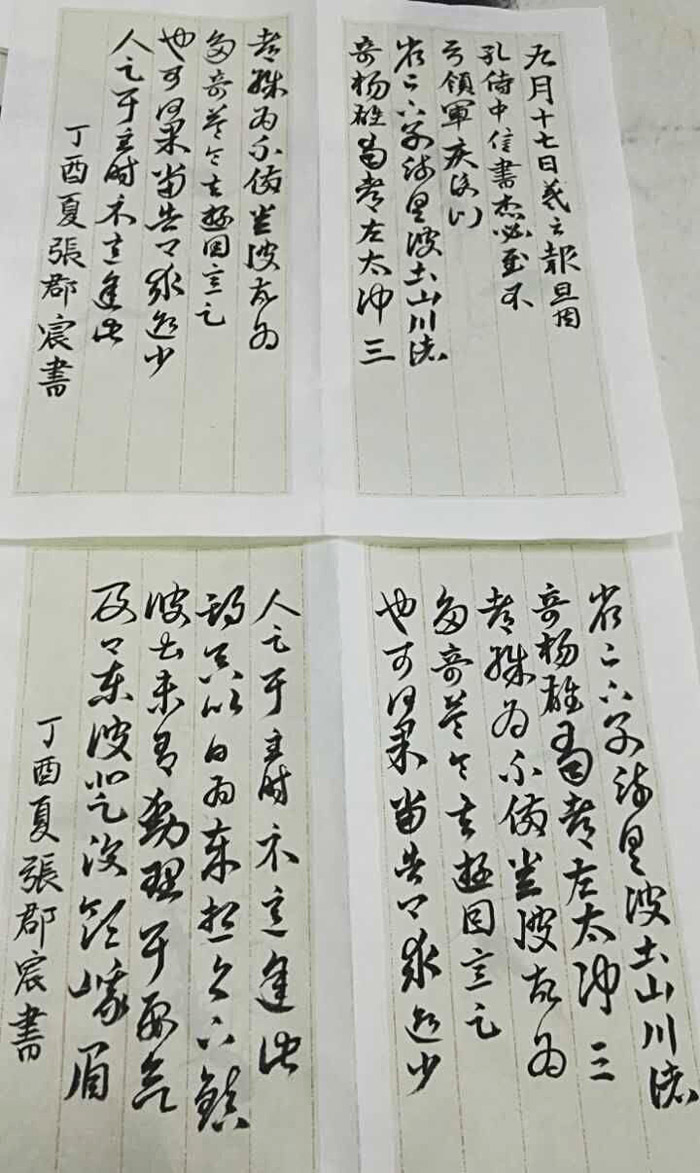 九月十七日羲之報且因
孔侍中信書想必至不
知領軍疾後問
省足下別疏具彼土山川諸
奇楊雄蜀都左太沖三
都殊為不備悉彼故為
多奇益令其遊目意足
也可得果當告卿求迎少
人足耳至時示意遲此
丁酉夏張郡宸書
省足下別疏具彼土山川諸
奇楊雄蜀都左太沖三
都殊為不備悉彼故為
多奇益令其遊目意足
也可得果當告卿求迎少
人足耳至時示意遲此
期真以日為歲想足下鎮
彼土未有動理耳要欲
及卿在彼登汶領峨眉
丁酉夏張郡宸書